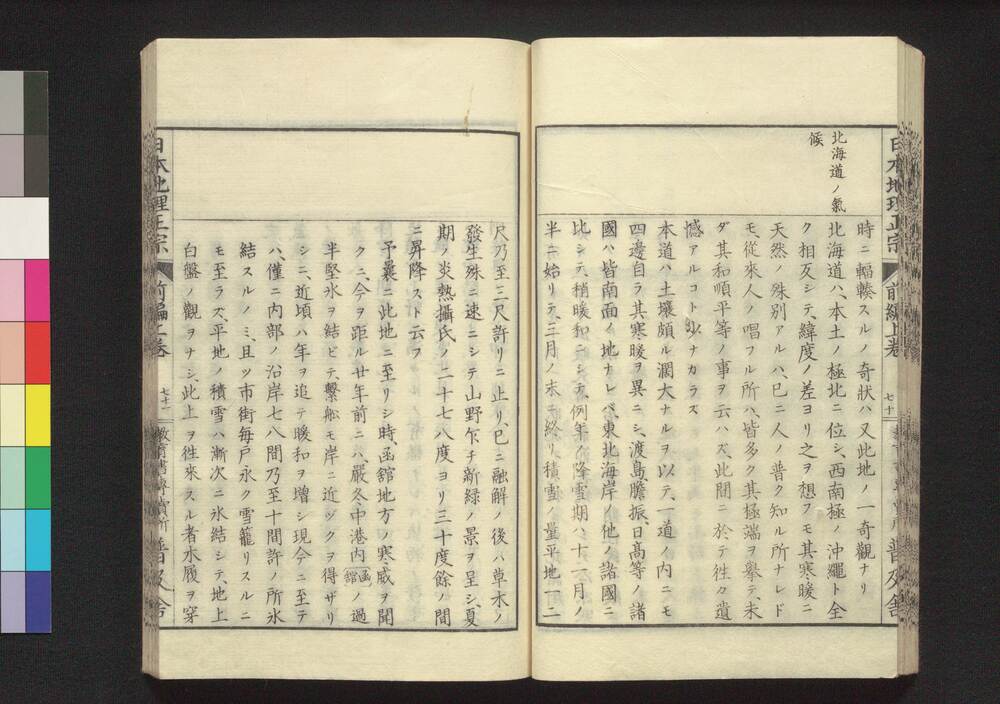 北海道ノ氣
候
時ニ輻輳スルノ奇狀ハ又此地ノ一奇觀ナリ
北海道ハ、本土ノ極北ニ位シ、西南極ノ沖繩ト全
ク相反シテ、緯度ノ差ヨリ之ヲ想フモ其寒暖ニ
天然ノ殊別アルハ、已ニ人ノ普ク知ル所ナレド
モ、從來人ノ唱フル所ハ、皆多ク其極端ヲ擧テ、未
ダ其和順平等ノ事ヲ云ハズ、此間ニ於テ徃々遺
憾アルコト少ナカラズ
本道ハ土壤頗ル濶大ナルヲ以テ、一道ノ內ニモ
四邊自ラ其寒暖ヲ異ニシ、渡島、膽振、日高等ノ諸
國ハ皆南面ノ地ナレバ、東北海岸ノ他ノ諸國ニ
比シテ、稍暖和ニシテ、例年ノ降雪期ハ、十一月ノ
半ニ始リテ、三月ノ末ニ終リ積雪ノ量平地一二
日本地理正宗
前編上卷
七十
普及舍
尺乃至三尺許リニ止リ、已ニ融解ノ後ハ草木ノ
發生殊ニ速ニシテ山野乍チ新綠ノ景ヲ呈シ、夏
期ノ炎熱攝氏ノ二十七八度ヨリ三十度餘ノ間
ニ昇降スト云フ
予曩ニ此地ニ至リシ時、函舘地方ノ寒威ヲ聞
クニ、今ヲ距ル廿年前ニハ、嚴冬中港內函舘ノ過
半堅氷ヲ結ビテ、繫船モ岸ニ近ヅクヲ得ザリ
シニ、近頃ハ年ヲ追テ暖和ヲ增シ現今ニ至テ
ハ、僅ニ內部ノ沿岸七八間乃至十間許ノ所氷
結スルノミ、且ツ市街每戶永ク雪籠リスルニ
モ至ラズ、平地ノ積雪ハ漸次ニ氷結シテ、地上
白盤ノ觀ヲナシ、此上ヲ徃來スル者木履ヲ穿
日本地理正宗
前編上卷
七十一
教育書專賣所
普及舍